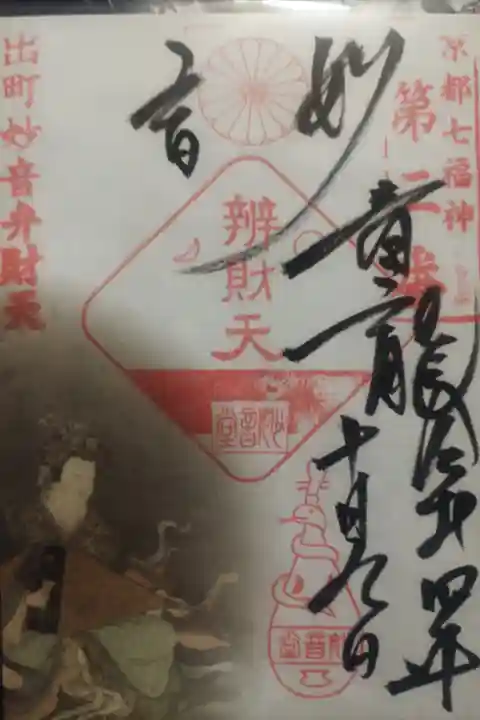 京都七福神
第二番
妙音
四年
十月九日
辨財天
妙音堂
妙音堂
出町妙音弁財天